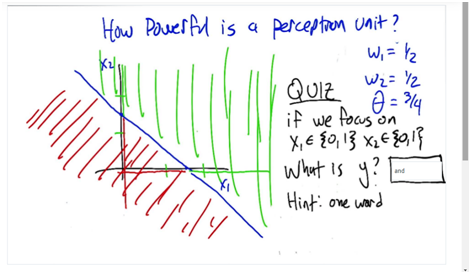 How Powerful is a perceptron unit?
X2
w1 = 1/2
w2 = 1/2
θ = 3/4
QUIZ
if we focus on
X1 ∈ {0,1} X2 ∈ {0,1}
What is y? and
Hint: one word
X1